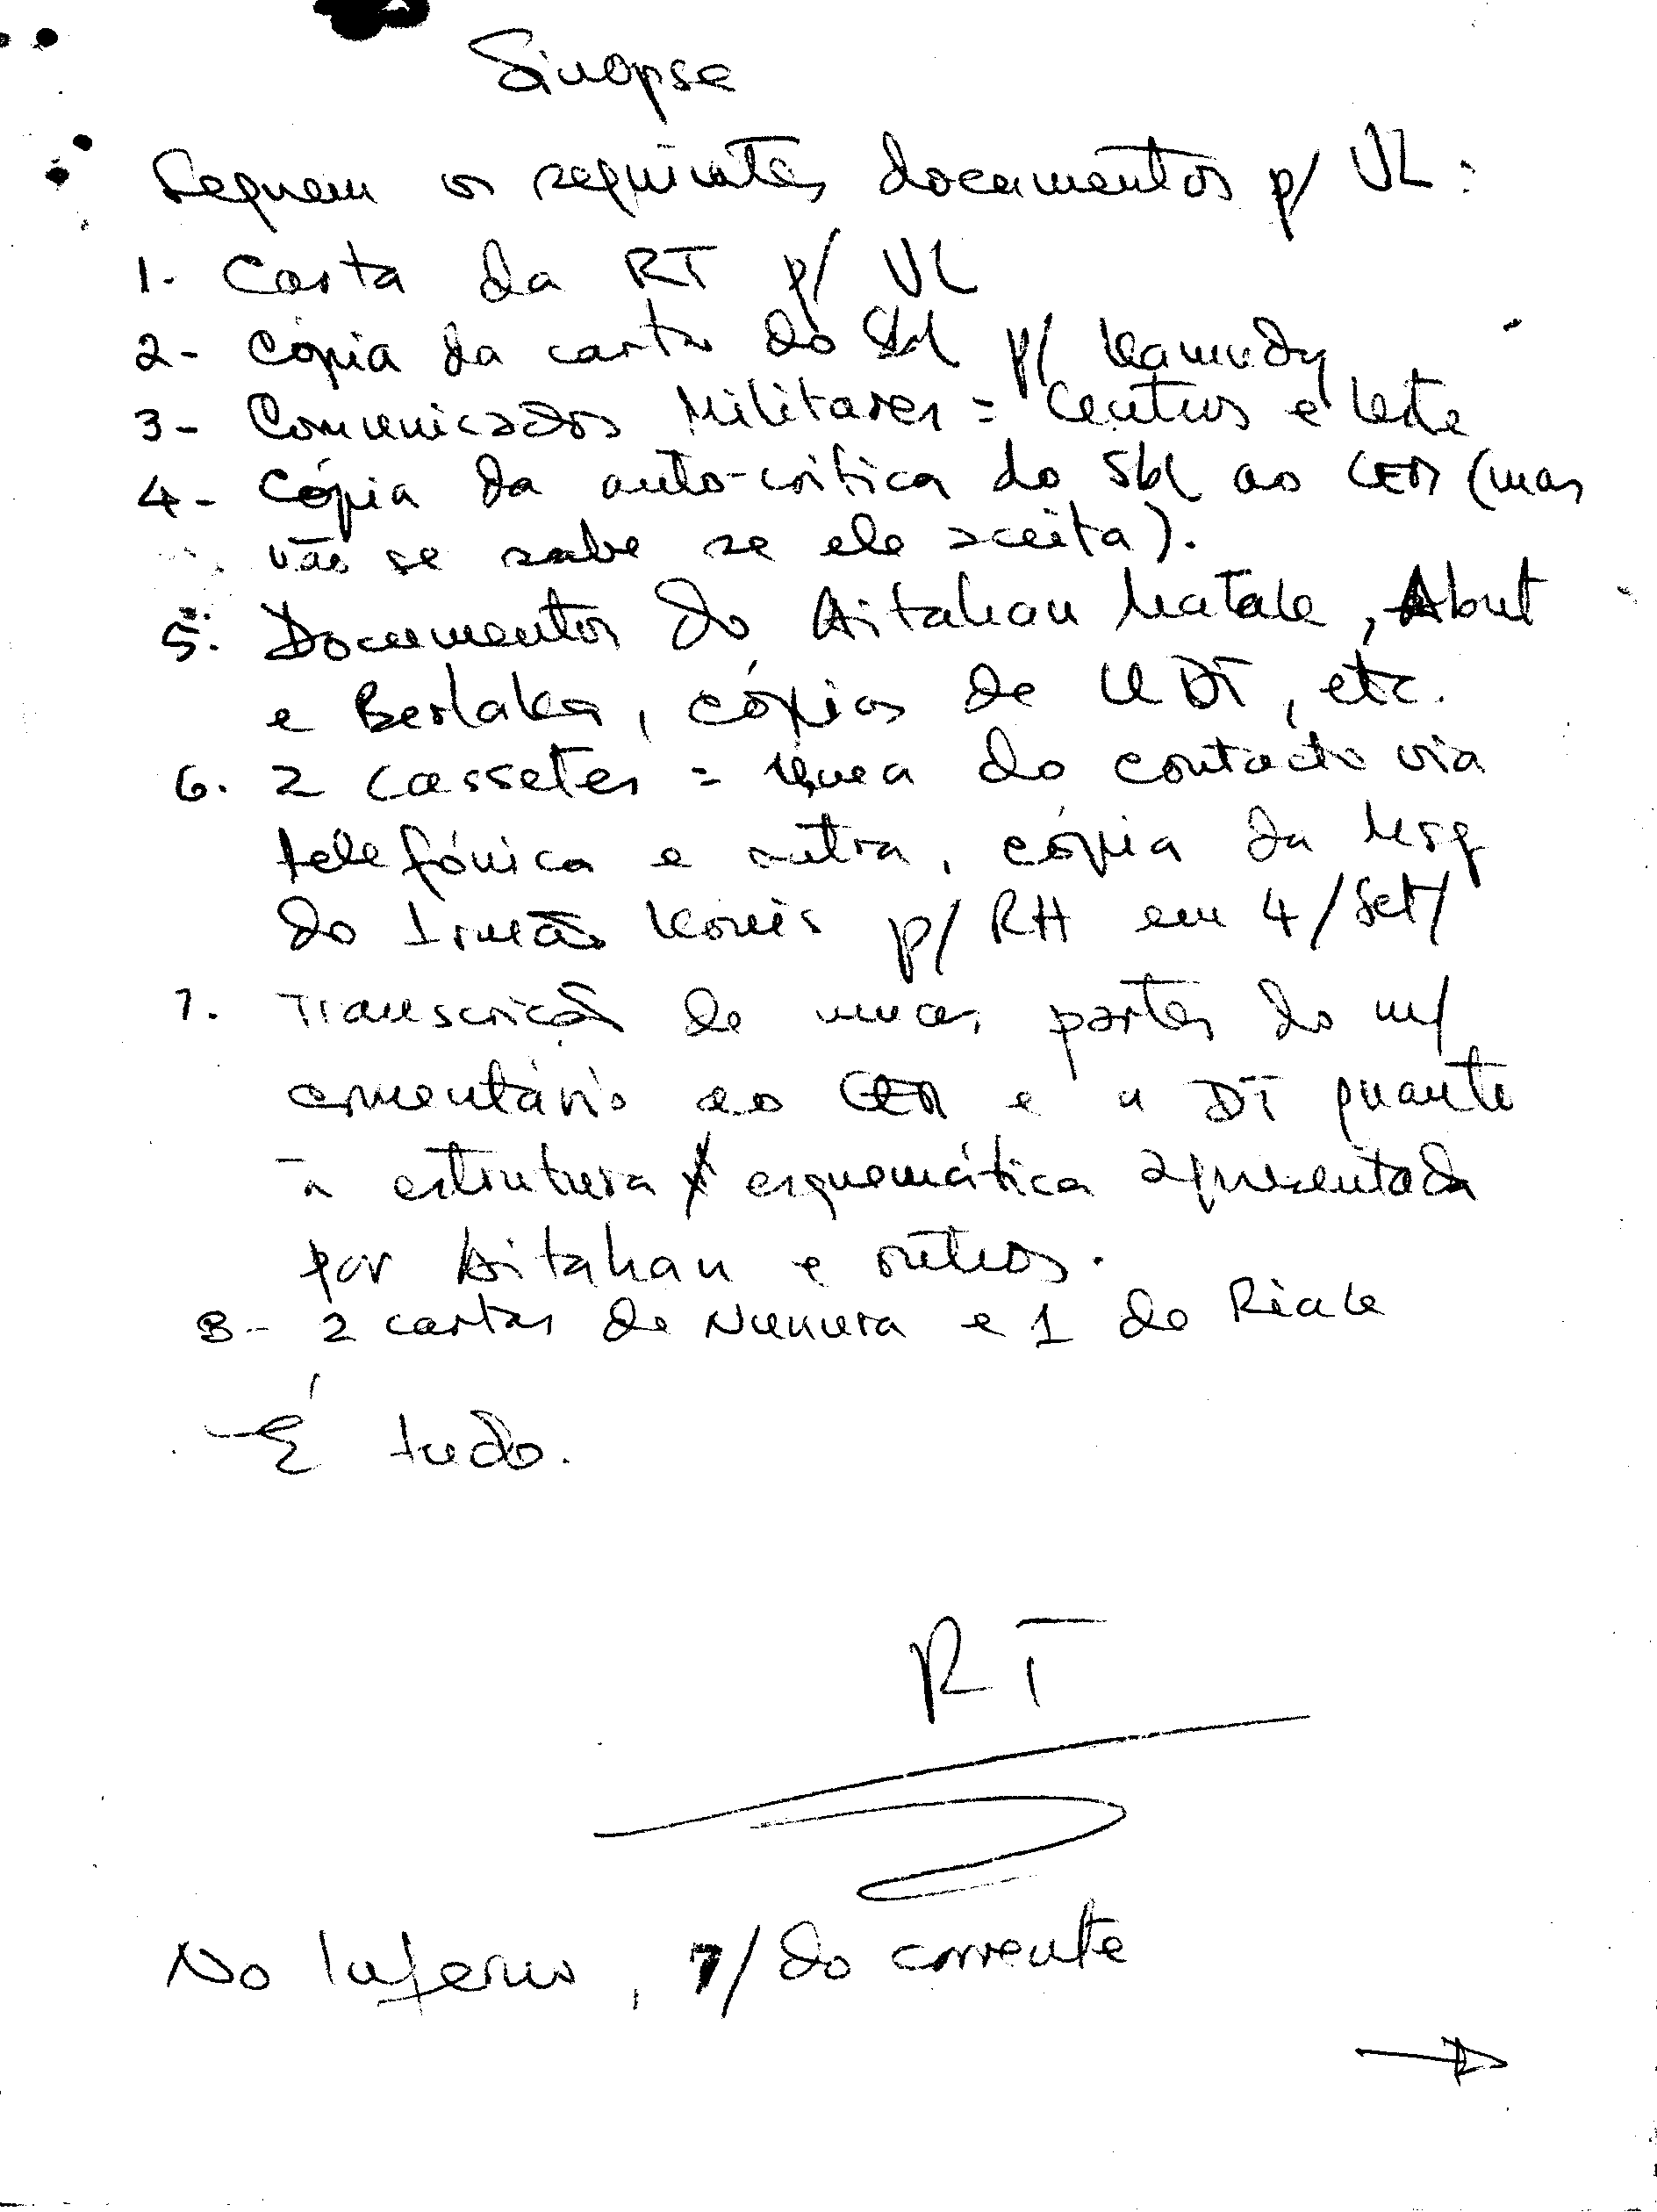 Sinopse
Seguem os seguintes documentos p/ VL:
1- Carta da RT p/ VL
2- Cópia da carta do Sbl p/ Kamudy
3- Comunicados Militares = Centros e leste
4- Cópia da auto-crítica do Sbl ao CEM (mas
não se sabe se ele aceita).
5. Documentos do Aitahan Matak, Abut
e Berlaka, cópias de UDT, etc.
6. 2 cassetes = uma do contacto via
telefónica e outra, cópia da Msg
do Irmão Konis p/ RH em 4/Set/
7. Transcrição de umas partes do m/
comentário ao CEM e a DT quanto
à estrutura esquemática apresentada
por Aitahan e outros.
8- 2 cartas de Numura e 1 do Riak
É tudo.
RT
No Inferno, 7/do corrente